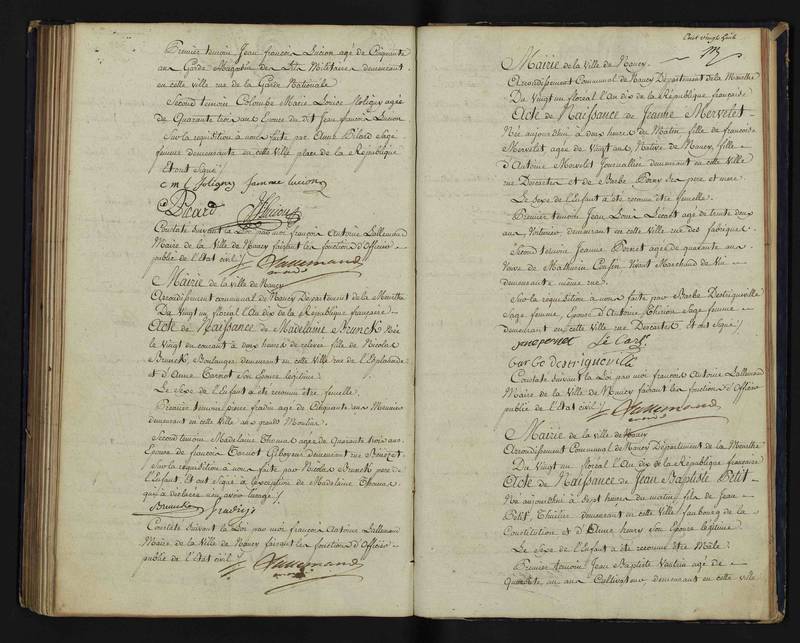 Premier temoin Jean françois Lucion agé de Cinquante
ans Garde Magasin des Lits Militaires demeurant
en cette ville rue de la Garde Nationale
Second temoin Colombe Marie Louise Joligny agée
de Quarante trois ans Epouse du dit Jean françois Lucion
Sur la requisition a nous faite par Anne Picard Sage
femme demeurante en cette Ville place de la République
Et ont signé
c m l Joligny femme lucion
Picard
Constaté suivant la Loi par moi françois Antoine Lallemand
Maire de la Ville de Nancy faisant les fonctions d'Officier
public de l'Etat civil
Lallemand
Mairie de la ville de Nancy
Arrondissement communal de Nancy Département de la Meurthe
Du Vingt un floréal l'An dix de la République française
Acte de Naissance de Madelaine Brunck Née
le Vingt du courant à deux heures de relevée fille de Nicolas
Brunck, Boulanger demeurant en cette Ville rue de l'Esplanade
et d'Anne Ternot Son Epouse légitime.
Le Sexe de l'Enfant a été reconnu être femelle.
Premier temoin pierre fradin agé de Cinquante ans Meunier
demeurant en cette Ville au grand Moulin.
Second temoin Madelaine Thomas agée de Quarante trois ans
Epouse de francois Ternot demeurant rue
Sur la requisition à nous faite par Nicolas Brunck pere de
l'Enfant, Et ont signé à l'exception de Madelaine Thomas
qui a declaré n'en avoir l'usage
Brunck
Constaté suivant la Loi par moi francois Antoine Lallemand
Maire de la Ville de Nancy faisant les fonctions d'Officier
public de l'Etat civil
Lallemand
Cent vingt huit
Mairie de la Ville de Nancy.
Arrondissement Communal de Nancy Département de la Meurthe
Du Vingt un floréal l'An dix de la République française
Acte de Naissance de Jeanne Mervelet
Née aujourd'hui à deux heures du Matin, fille de francoise
Mervelet agée de Vingt ans, Native de Nancy, fille
d'Antoine Mervelet Journallier demeurant en cette Ville
rue Descartes et de Barbe ses pere et mere.
Le Sexe de l'Enfant a été reconnu être femelle.
Premier temoin Jean Louis agé de trente deux
ans demeurant en cette Ville rue des fabriques
Second temoin Jeanne agée de quarante ans
Veuve de Mathurin vivant Marchand de Vin
demeurante même rue.
Sur la requisition a nous faite par Barbe Destriqueville
Sage femme, Epouse d'Antoine Thirion Sage femme
demeurant en cette Ville rue Descartes Et ont signé
barbe destriqueville
Constaté suivant la Loi par moi françois Antoine Lallemand
Maire de la Ville de Nancy faisant les fonctions d'Officier
public de l'Etat civil
Lallemand
Mairie de la ville de Nancy
Arrondissement Communal de Nancy Département de la Meurthe
Du Vingt un floréal l'An dix de la République française
Acte de Naissance de Jean Baptiste Petit
Né aujourd'hui à sept heures du matin, fils de Jean
Petit, Thuilier demeurant en cette Ville faubourg de la
Constitution et d'Anne henry son Epouse légitime.
Le Sexe de l'Enfant a été reconnu être Mâle.
Premier temoin Jean Baptiste Vautrin agé de
quarante un ans Cultivateur demeurant en cette ville